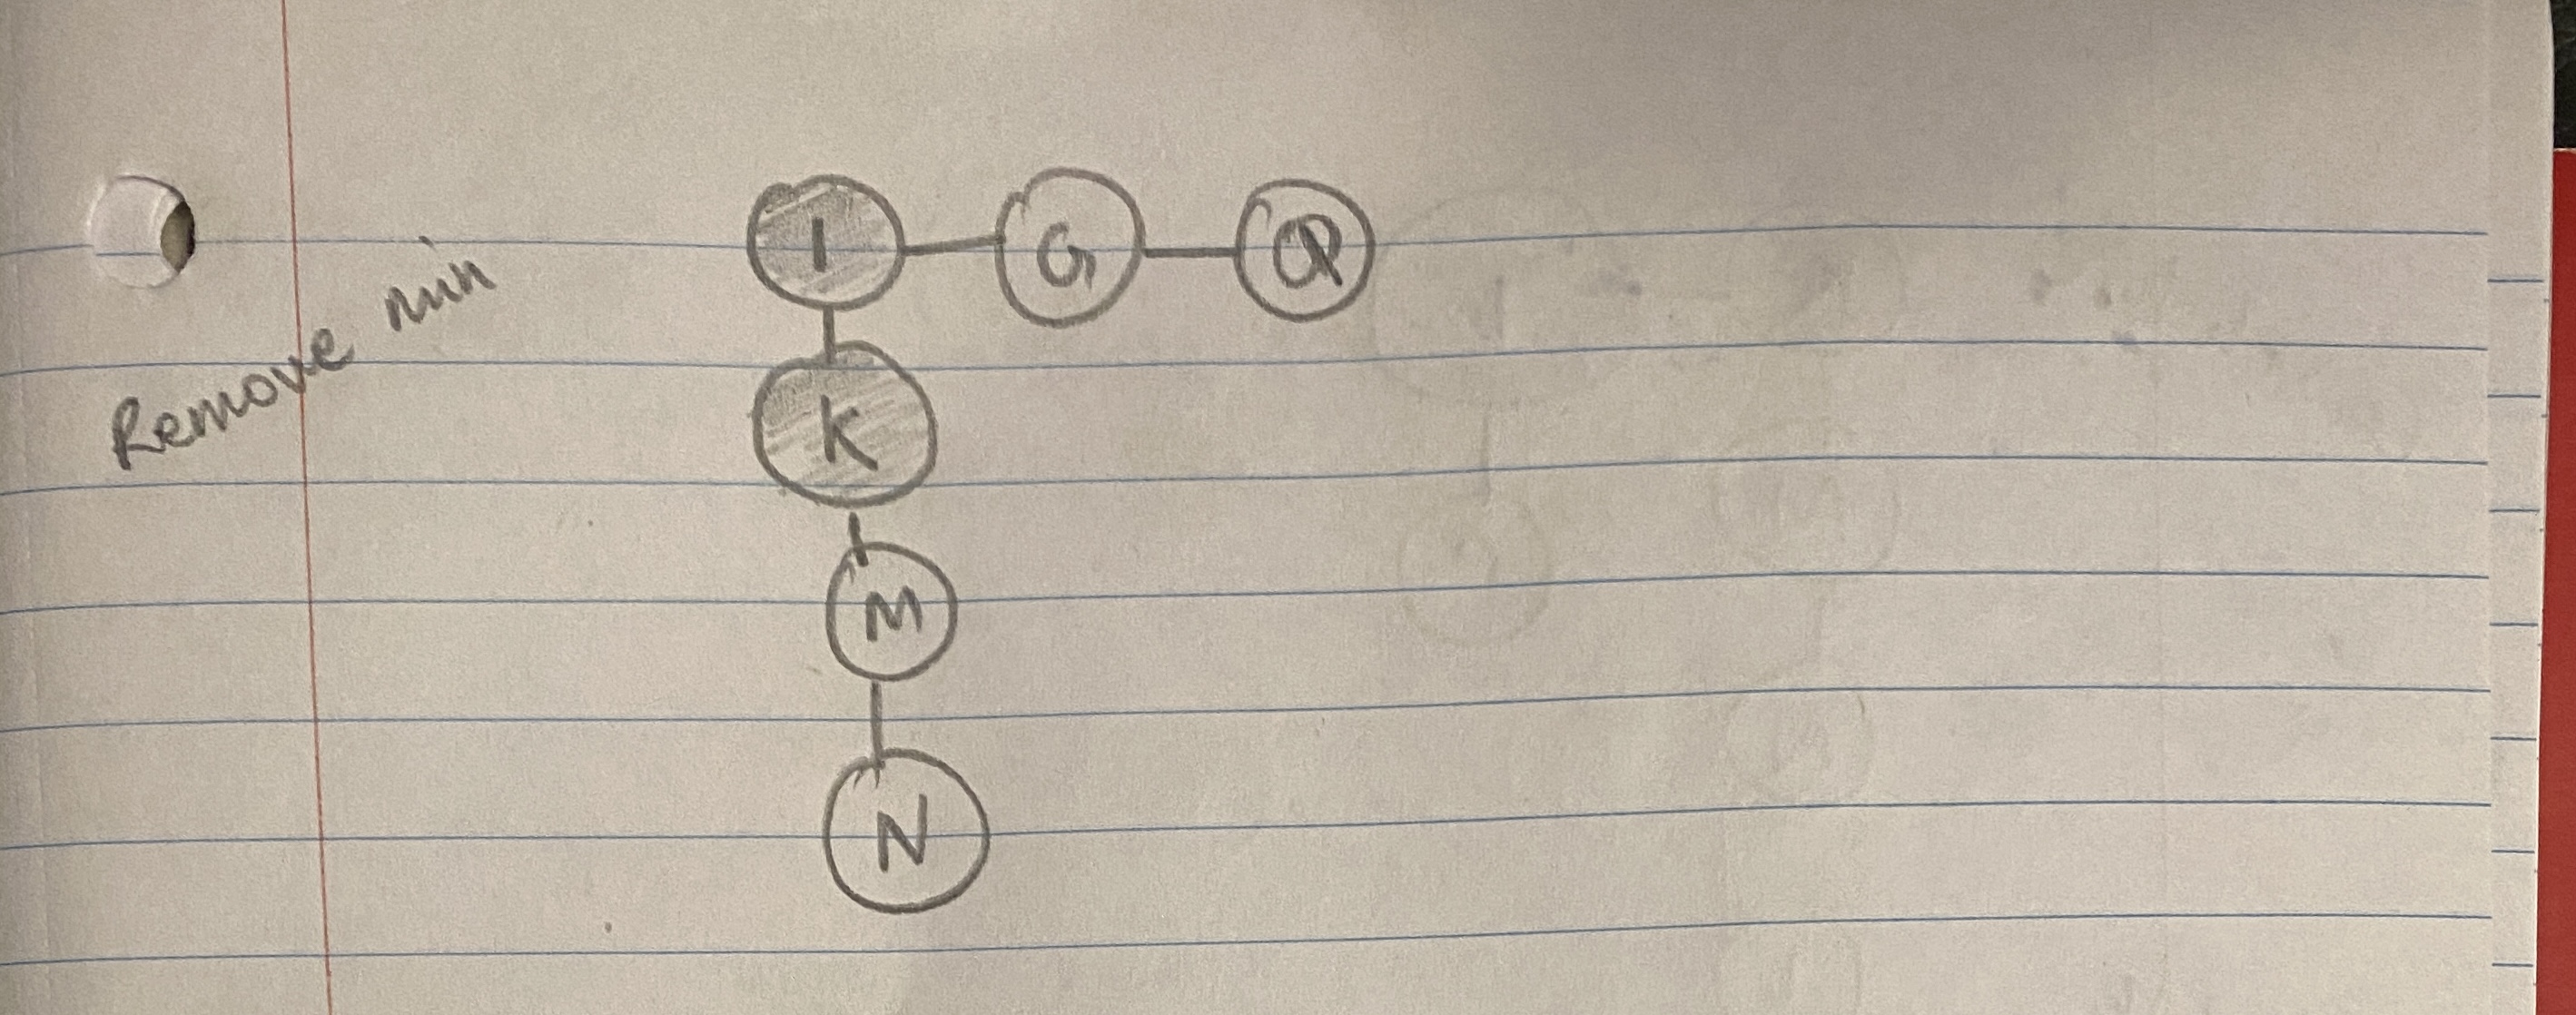 Remove min
I G Q
K
M
N